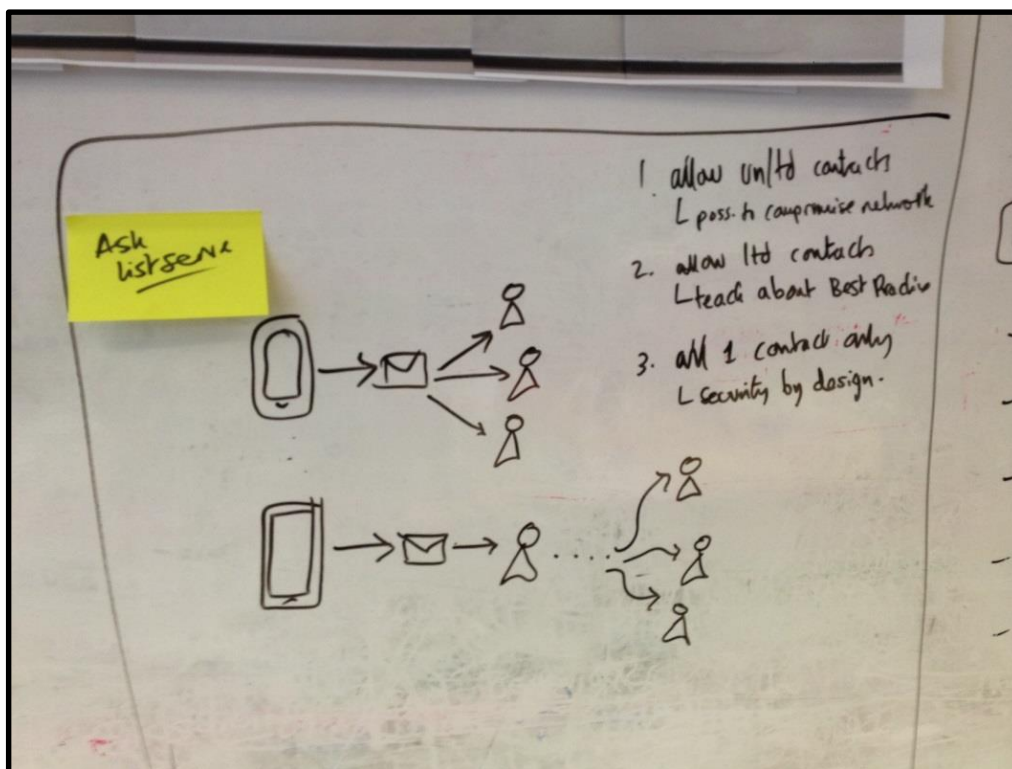 Ask
listserve
1. allow un/td contacts
poss. to compromise network
2. allow ltd contacts
teach about Best Practice
3. add 1 contact only
security by design.